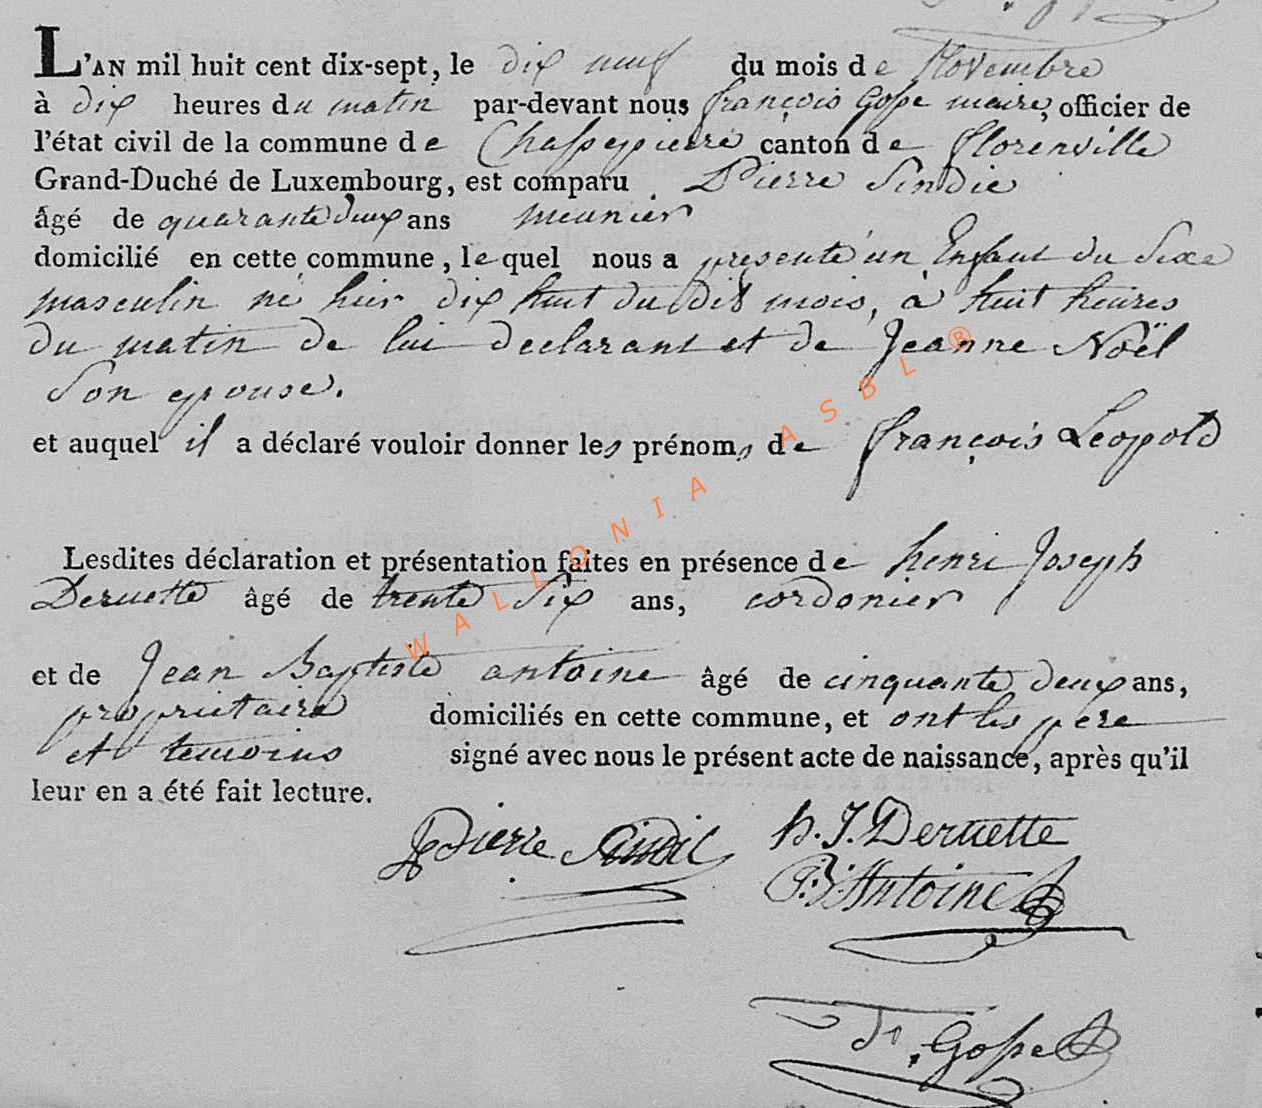 L'AN mil huit cent dix-sept, le dix neuf du mois de Novembre
à dix heures du matin par-devant nous françois Gosse maire, officier de
l'état civil de la commune de Chassepierre canton de florenville
Grand-Duché de Luxembourg, est comparu Pierre Sindic
âgé de quarante deux ans meunier
domicilié en cette commune, lequel nous a presenté un Enfant du Sixe
masculin né hier dix huit du dit mois, à huit heures
du matin de lui declarant et de Jeanne Noël
Son epouse.
et auquel il a déclaré vouloir donner les prénoms de françois Leopold
Lesdites déclaration et présentation faites en présence de henri Joseph
Deruette âgé de trente Six ans, cordonier
et de Jean Baptiste antoine âgé de cinquante deux ans,
propriétaire domiciliés en cette commune, et ont les pere
et temoins signé avec nous le présent acte de naissance, après qu'il
leur en a été fait lecture.
Pierre Sindic h. J. Deruette
J: B: Antoine
f. Gosse
WALLONIA ASBL ®